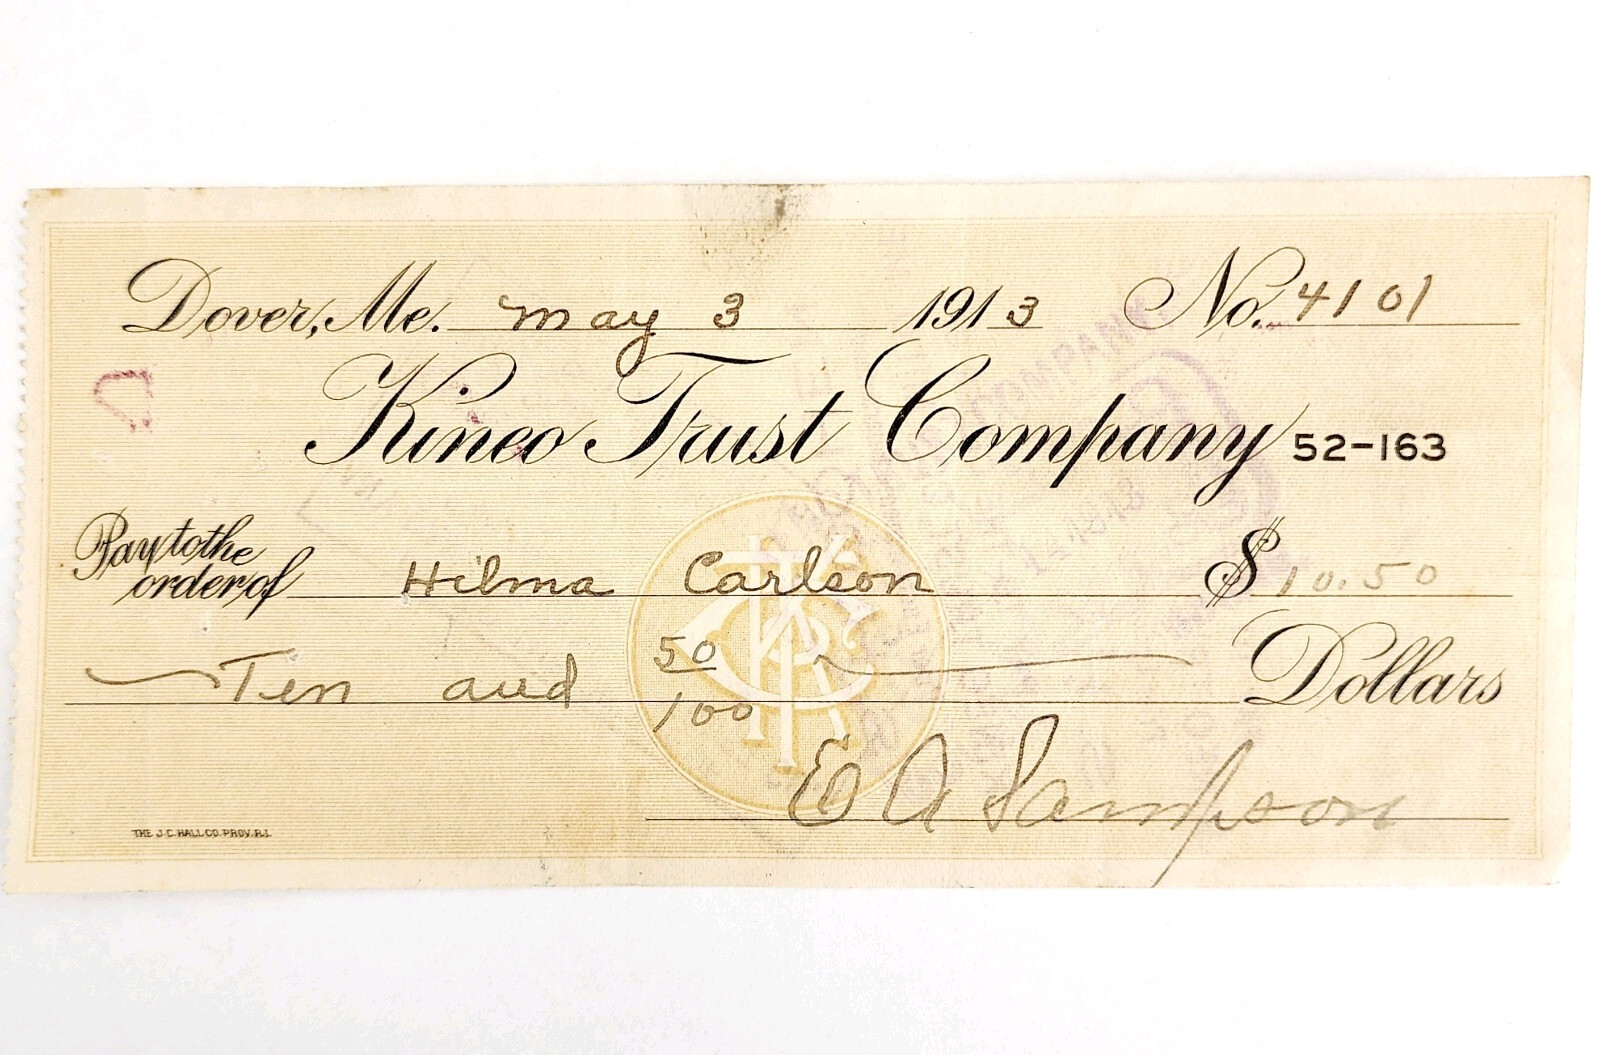 Dover, Me. May 3 1913 No. 4101
Kineo Trust Company 52-163
Pay to the
order of Hilma Carlson $ 10.50
Ten and 50/100 Dollars
E A Sampson
THE J.C. HALL CO. PROV. R.I.
COMPANY